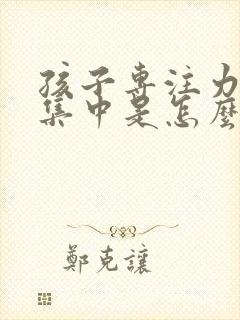 孩子專注力
集中是怎麼
鄭克讓